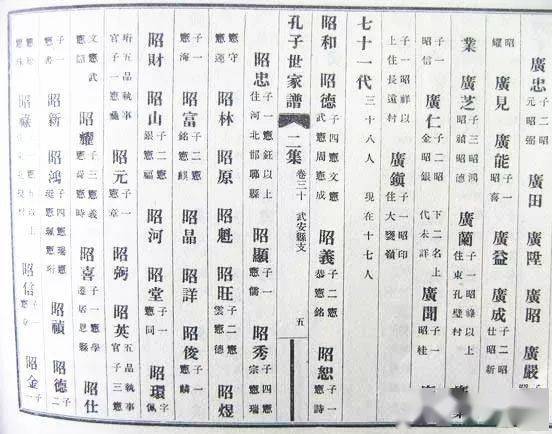 廣忠 元昭弼 廣田 廣陞 廣昭 廣嚴
昭耀 廣見 廣能 子一昭喜 廣益 廣成 子二昭仕昭新
業 廣芝 子三昭鴻昭禎昭德 廣蘭
子一昭信 廣仁 子二昭銀昭金 下二名上代未詳 廣聞 子一昭桂
子一昭祥以上住長遠村 廣鎮 子一昭印住大甕嶺
七十一代 三十八人 現在十七人
昭和 昭德 子四憲文憲武憲周憲成 昭義 子二憲銘憲恭 昭恕 子一憲詩
孔子世家譜 二集 卷三十 武安縣支 五
昭忠 子一憲鈺以上住河北邯鄲縣 昭顯 子一憲儒 昭秀 子四憲瑞憲宗
憲守憲蓮 昭林 昭原 昭魁 昭旺 子二憲德憲雲 昭煜
子一憲海 昭富 子二憲麒憲銘 昭晶 昭詳 昭俊 子一憲麟
昭財 昭山 子二憲福憲銀 昭河 昭堂 子一憲同 昭環 字佩
珩五品執事官子一憲 昭元 子一憲章 昭弼 昭英 五品執事官子三憲
文憲武憲誥 昭耀 子三憲義憲時 昭喜 子一憲學遷居恩縣 昭仕
子一憲書 昭新 昭鴻 子四憲瑞憲珩 昭禎 昭德 子二
憲珍憲珠 昭祿 昭信 子一憲章 昭金